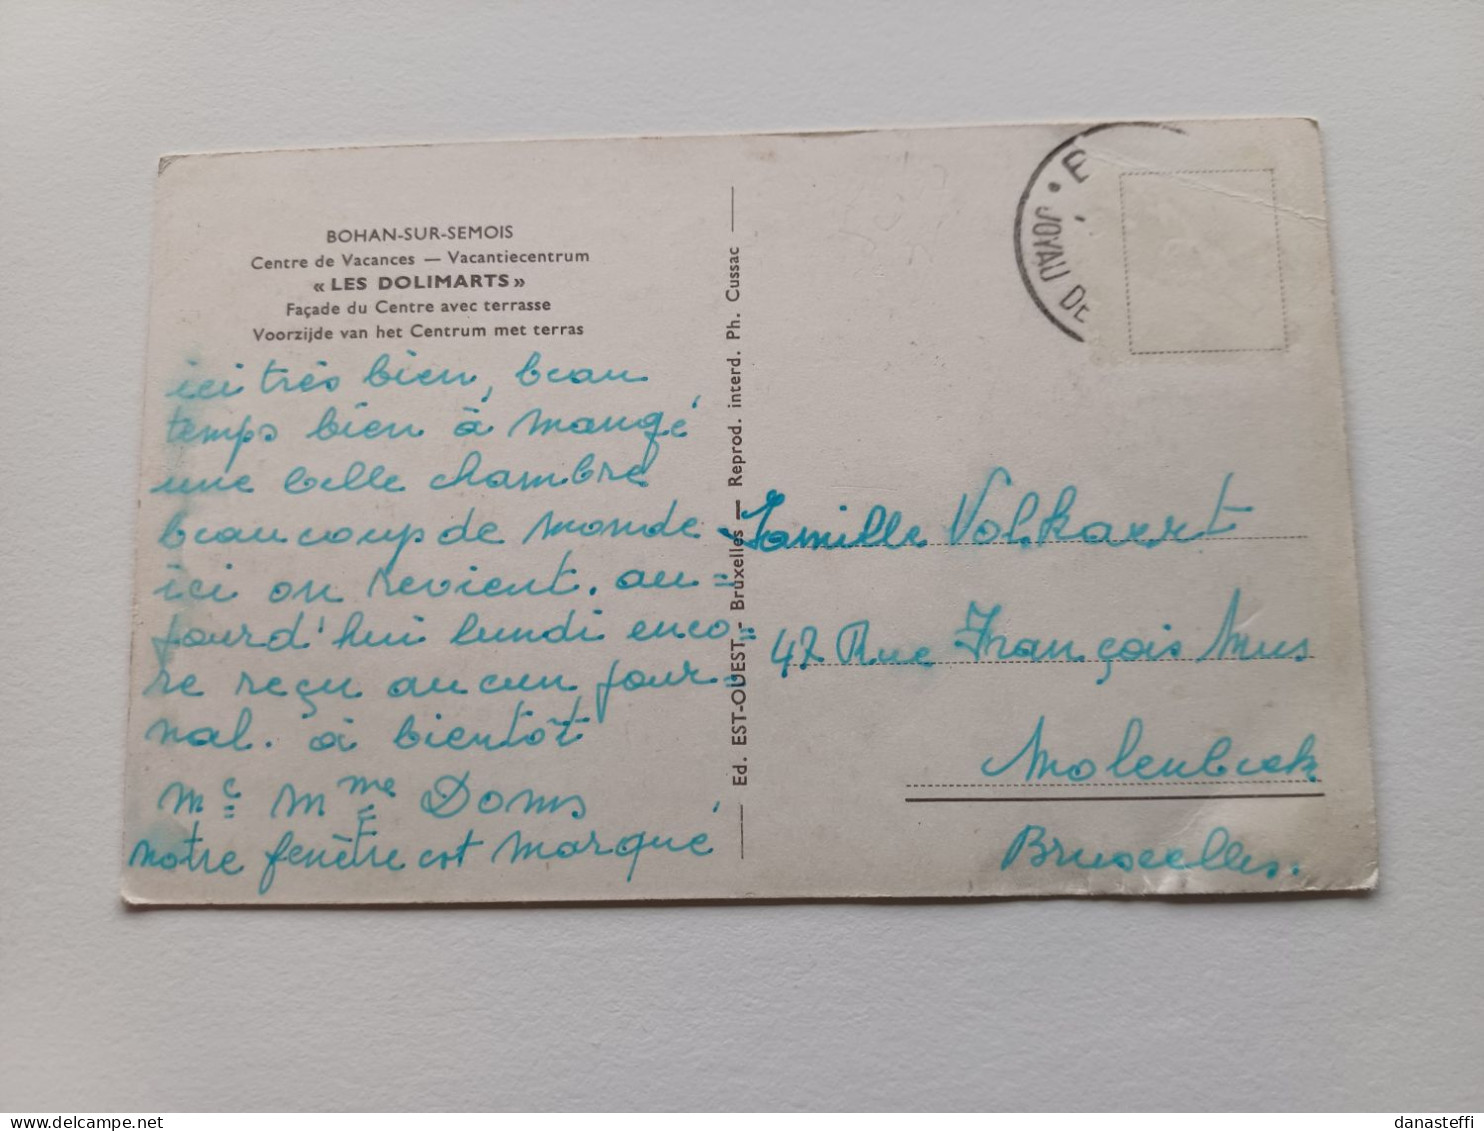 BOHAN-SUR-SEMOIS
Centre de Vacances — Vacantiecentrum
« LES DOLIMARTS »
Façade du Centre avec terrasse
Voorzijde van het Centrum met terras
ici très bien, beau
temps bien à mangé
une belle chambre
beaucoup de monde
ici on revient. au=
jourd'hui lundi enco=
re reçu aucun jour=
nal. à bientôt
Mr Mme Doms
notre fenêtre est marqué
Ed. EST-OUEST - Bruxelles — Reprod. interd. Ph. Cussac
• JOYAU DE
Famille Volkaert
47 Rue François Mus
Molenbeek
Bruxelles.
delcampe.net
danasteffi